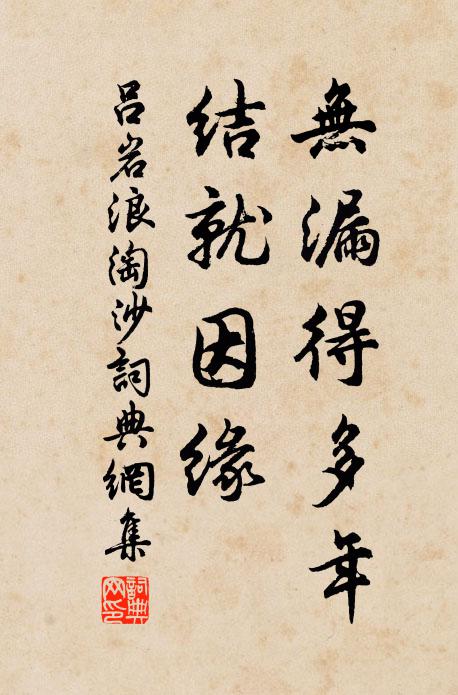 無漏得多年
結就因緣
呂岩浪淘沙詞典網集
詞典网印